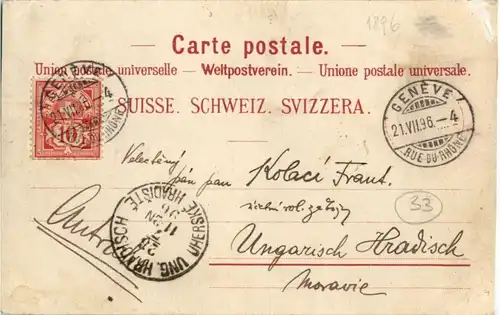 1896
Carte postale.
Union postale universelle. – Weltpostverein. – Unione postale universale.
SUISSE. SCHWEIZ. SVIZZERA.
GENÈVE
21.VII.96.–4
RUE DU RHÔNE
10
Velectěný
pán pan Kolací Frant.
33
UNG. HRADISCH
UHERSKÉ HRADIŠTĚ
Ungarisch Hradisch
Moravie